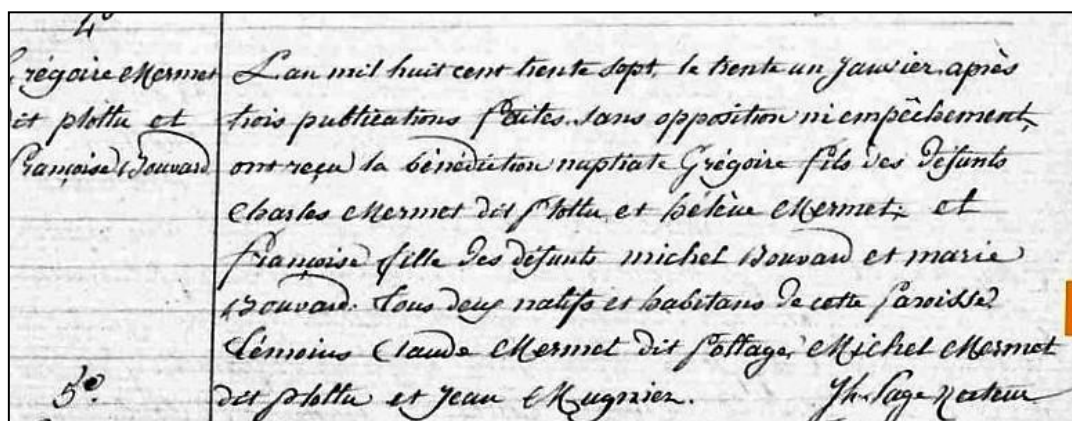 4°
Grégoire Mermet
dit plottu et
françoise Bouvard
L'an mil huit cent trente sept, le trente un janvier après
trois publications faites sans opposition ni empêchement,
ont reçu la bénédiction nuptiale Grégoire fils des défunts
Charles Mermet dit plottu et hélène Mermet; et
françoise fille des défunts michel Bouvard et marie
Bouvard. Tous deux natifs et habitans de cette paroisse
Témoins Claude Mermet dit pottage, Michel Mermet
dit plottu et Jean Mugnier. Jh. Page Recteur
5°.